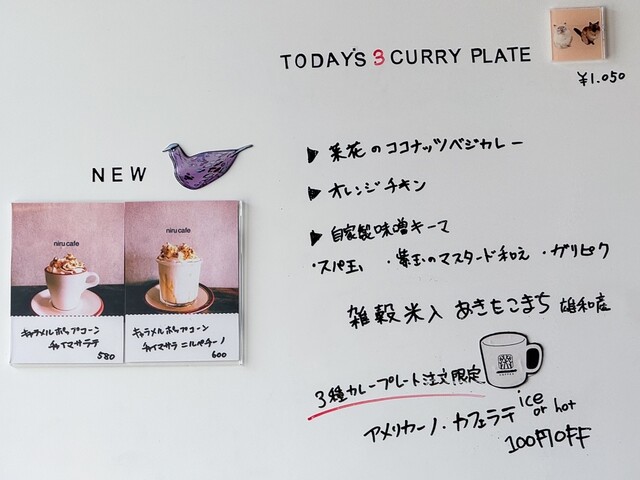 TODAY'S 3 CURRY PLATE
¥1.050
▶ 菜花のココナッツベジカレー
▶ オレンジチキン
▶ 自家製味噌キーマ
・スパ玉 ・紫玉のマスタード和え ・ガリピク
雑穀米入 あきたこまち 雄和産
3種カレープレート注文限定
アメリカーノ・カフェラテ ice or hot
100円OFF
NEW
niru cafe
キャラメルポップコーン
チャイマサラテ
580
niru cafe
キャラメルポップコーン
チャイマサラ ニルパチーノ
600
COFFEE